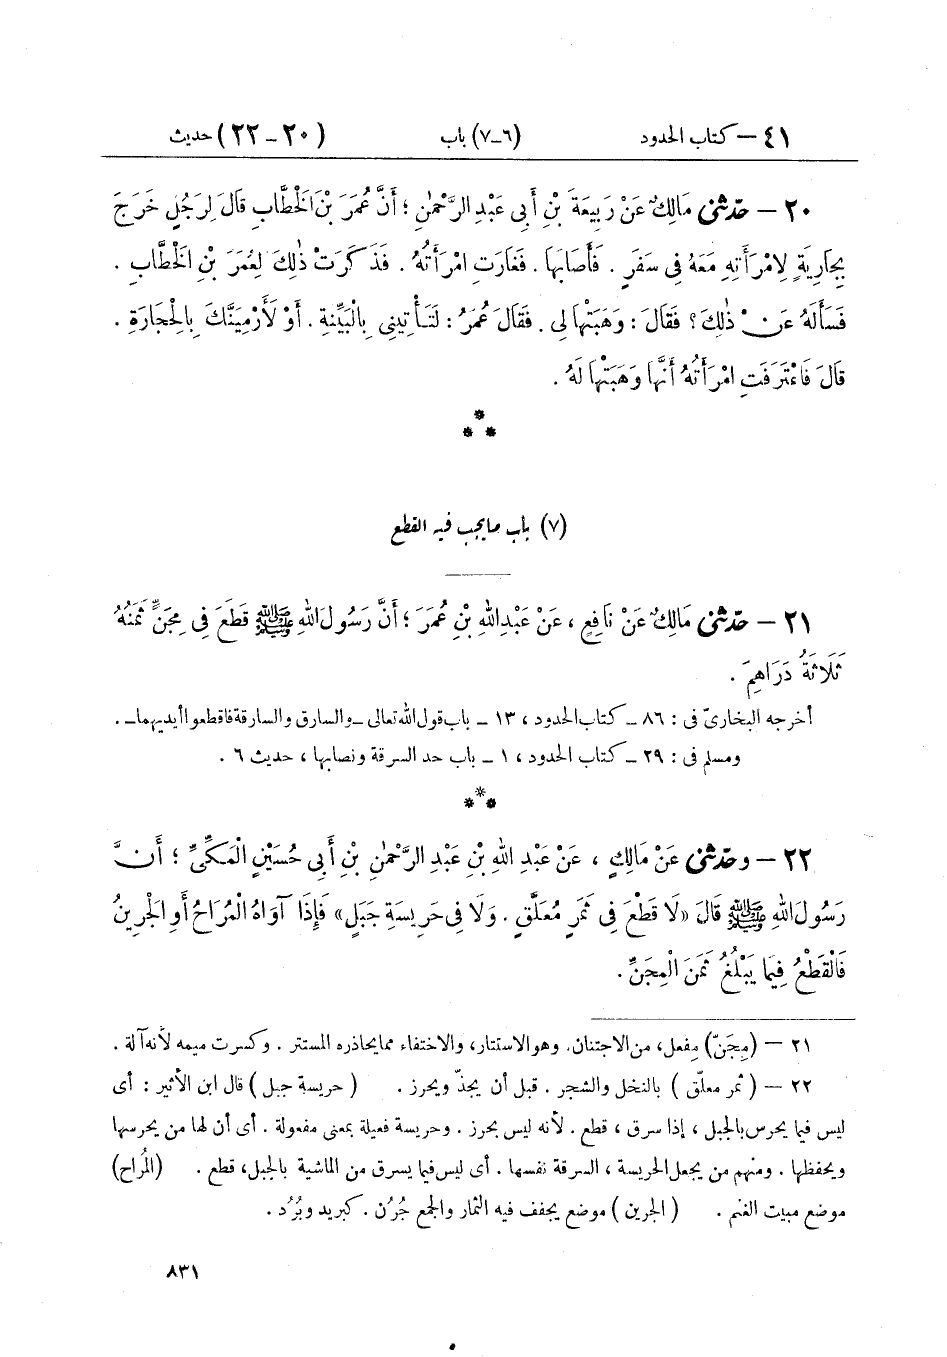 ٤١ – كتاب الحدود (٦-٧) باب (٢٠ - ٢٢) حديث
٢٠ – حَدَّثَنِي مَالِكٌ عَنْ رَبِيعَةَ بْنِ أَبِي عَبْدِ الرَّحْمٰنِ؛ أَنَّ عُمَرَ بْنَ الْخَطَّابِ قَالَ لِرَجُلٍ خَرَجَ
بِجَارِيَةٍ لِامْرَأَتِهِ مَعَهُ فِي سَفَرٍ. فَأَصَابَهَا. فَغَارَتِ امْرَأَتُهُ. فَذَكَرَتْ ذٰلِكَ لِعُمَرَ بْنِ الْخَطَّابِ.
فَسَأَلَهُ عَنْ ذٰلِكَ؟ فَقَالَ: وَهَبَتْهَا لِي. فَقَالَ عُمَرُ: لَتَأْتِيَنِّي بِالْبَيِّنَةِ. أَوْ لَأَرْمِيَنَّكَ بِالْحِجَارَةِ.
قَالَ فَاعْتَرَفَتِ امْرَأَتُهُ أَنَّهَا وَهَبَتْهَا لَهُ.
(٧) باب ما يجب فيه القطع
٢١ – حَدَّثَنِي مَالِكٌ عَنْ نَافِعٍ، عَنْ عَبْدِ اللهِ بْنِ عُمَرَ؛ أَنَّ رَسُولَ اللهِ ﷺ قَطَعَ فِي مِجَنٍّ ثَمَنُهُ
ثَلَاثَةُ دَرَاهِمَ.
أخرجه البخاريّ فى: ٨٦ – كتاب الحدود، ١٣ – باب قول الله تعالى – والسارق والسارقة فاقطعوا أيديهما –.
ومسلم فى: ٢٩ – كتاب الحدود، ١ – باب حد السرقة ونصابها، حديث ٦.
٢٢ – وحَدَّثَنِي عَنْ مَالِكٍ، عَنْ عَبْدِ اللهِ بْنِ عَبْدِ الرَّحْمٰنِ بْنِ أَبِي حُسَيْنٍ الْمَكِّيِّ؛ أَنَّ
رَسُولَ اللهِ ﷺ قَالَ «لَا قَطْعَ فِي ثَمَرٍ مُعَلَّقٍ. وَلَا فِي حَرِيسَةِ جَبَلٍ» فَإِذَا آوَاهُ الْمُرَاحُ أَوِ الْجَرِينُ
فَالْقَطْعُ فِيمَا يَبْلُغُ ثَمَنَ الْمِجَنِّ.
٢١ – (مِجَنّ) مِفعل، من الاجتنان. وهو الاستتار، والاختفاء مما يحاذره المستتر. وكسرت ميمه لأنه آلة.
٢٢ – (ثمر معلّق) بالنخل والشجر. قبل أن يجذّ ويحرز. (حريسة جبل) قال ابن الأثير: أى
ليس فيما يحرس بالجبل، إذا سرق، قطع. لأنه ليس بحرز. وحريسة فعيلة بمعنى مفعولة. أى أن لها من يحرسها
ويحفظها. ومنهم من يجعل الحريسة، السرقة نفسها. أى ليس فيما يسرق من الماشية بالجبل، قطع. (المُراح)
موضع مبيت الغنم. (الجرين) موضع يجفف فيه الثمار والجمع جُرُن. كبريد وبُرُد.
٨٣١